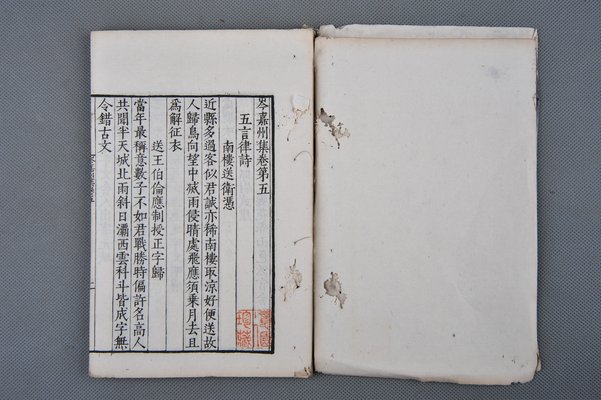 岑嘉州集卷第五
五言律詩
南樓送衛憑
近縣多過客似君誠亦稀南樓取涼好便送故
人歸鳥向望中滅雨侵晴處飛應須乘月去且
為解征衣
送王伯倫應制授正字歸
當年最稱意數子不如君戰勝時偏許名高人
共聞半天城北雨斜日灞西雲科斗皆成字無
令錯古文